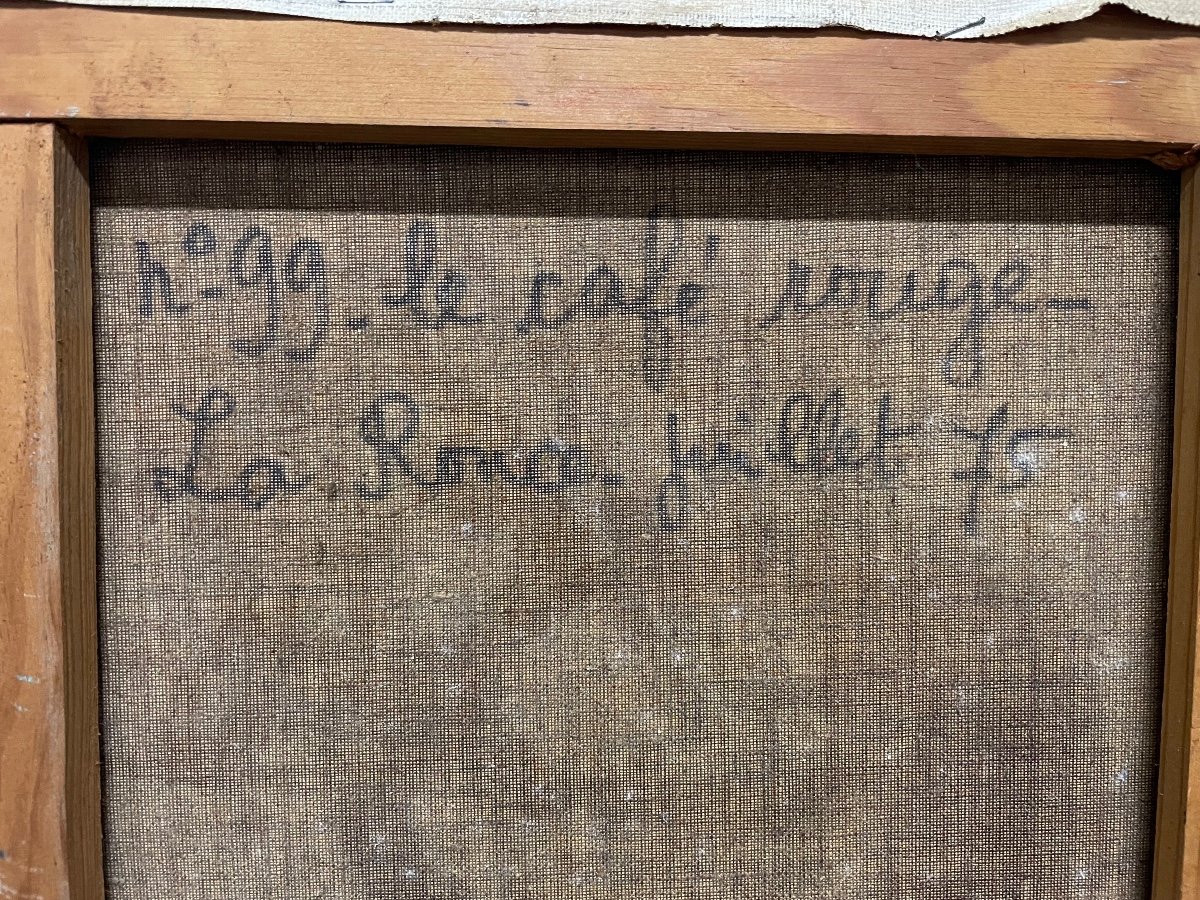 n°-99. le café rouge-
La Rna juillet 75